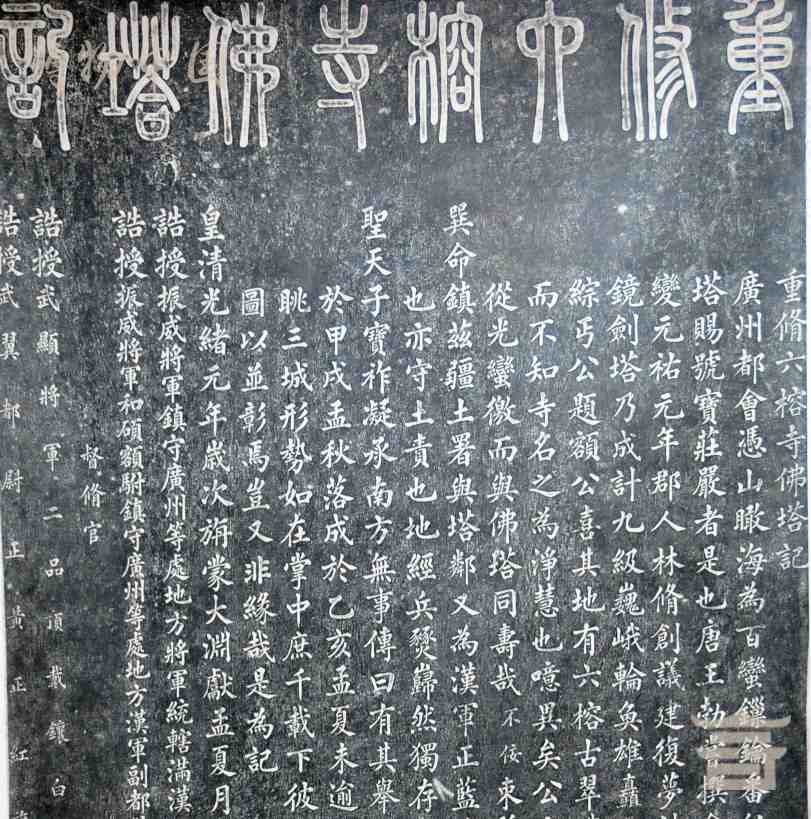 重修六榕寺佛塔記
重脩六榕寺佛塔記
廣州都會憑山瞰海為百蠻鎖鑰番
塔賜號寶莊嚴者是也唐王勃嘗撰
變元祐元年郡人林脩創議建復夢
鏡劍塔乃成計九級巍峨輪奐雄
綜丐公題額公喜其地有六榕古翠
而不知寺名之為淨慧也噫異矣公
從光蠻徼而與佛塔同壽哉不佞東
巽命鎮茲疆土署與塔鄰又為漢軍正藍
也亦守土責也地經兵燹巋然獨存
聖天子寶祚凝承南方無事傳曰有其舉
於甲戌孟秋落成於乙亥孟夏未逾
眺三城形勢如在掌中庶千載下彼
圖以並彰焉豈又非緣哉是為記
皇清光緒元年歲次旃蒙大淵獻孟夏月
誥授振威將軍鎮守廣州等處地方將軍統轄滿漢
誥授振威將軍和碩額駙鎮守廣州等處地方漢軍副都
督脩官
誥授武顯將軍二品頂戴鑲白
誥授武翼都尉正黃正紅